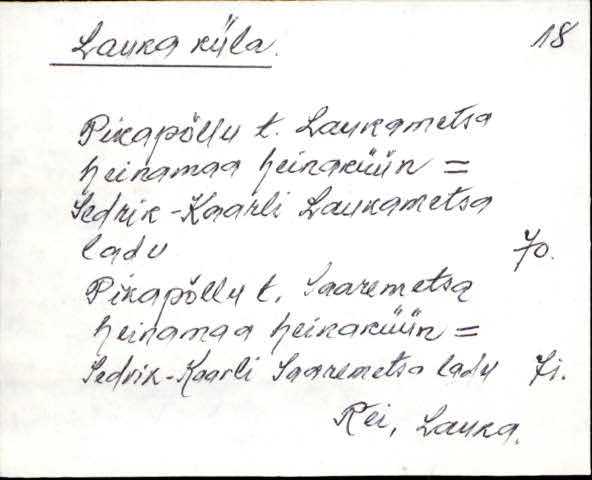 Lauka küla.
18
Pikapõllu t. Laukametsa
heinamaa heinaküün =
Sedrik-Kaarli Laukametsa
ladu 70.
Pikapõllu t. Saaremetsa
heinamaa heinaküün =
Sedrik-Kaarli Saaremetsa ladu 71.
Rei, Lauka.